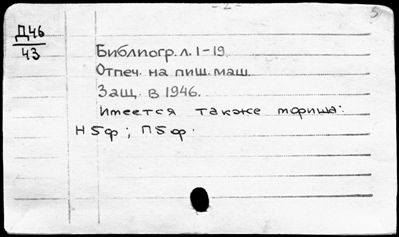 - 2 -
5
Д46
43
Библиогр. л. 1-19.
Отпеч. на пиш. маш.
Защ. в 1946.
Имеется также мфиша:
Н5ф ; П5ф.